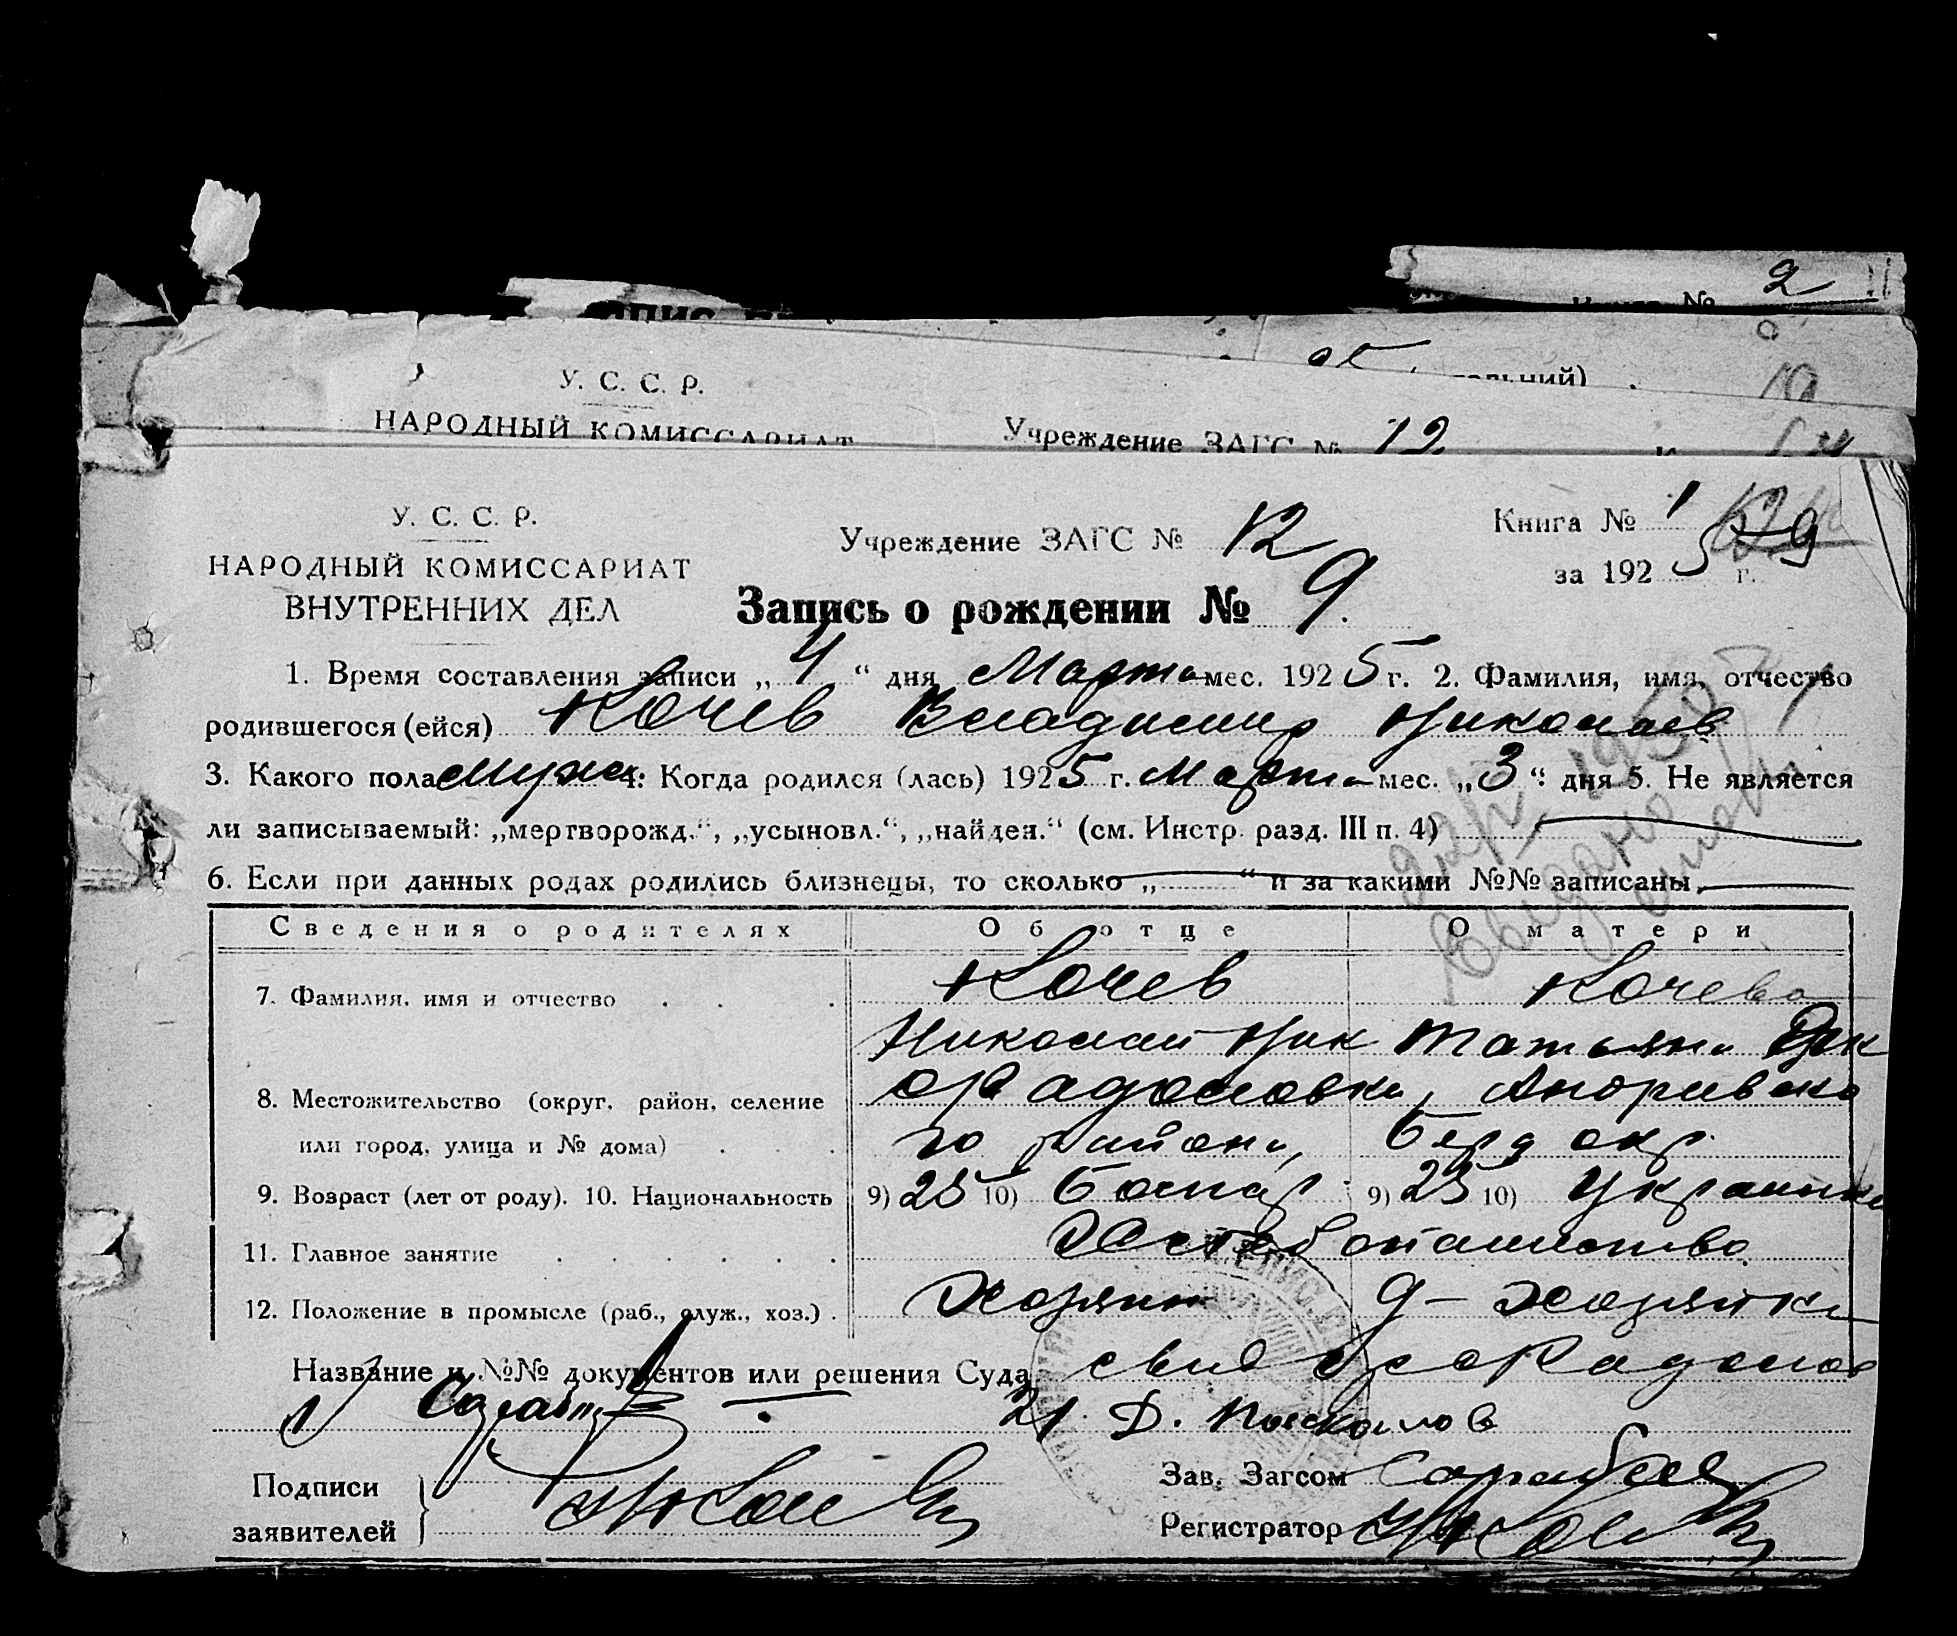 2
Книга №
У. С. С. Р.
НАРОДНЫЙ КОМИССАРИАТ
Учреждение ЗАГС № 12
У. С. С. Р.
НАРОДНЫЙ КОМИССАРИАТ
ВНУТРЕННИХ ДЕЛ
Учреждение ЗАГС № 12
Книга № 1
за 1925 г.
Запись о рождении № 9.
1. Время составления записи „4“ дня Марта мес. 1925 г. 2. Фамилия, имя, отчество
родившегося (ейся) Кочев Владимир Николаев
3. Какого пола Мужс 4. Когда родился (лась) 1925 г. Марта мес. „3“ дня 5. Не является
ли записываемый: „мертворожд.“, „усыновл.“, „найден.“ (см. Инстр. разд. III п. 4)
6. Если при данных родах родились близнецы, то сколько „ “ и за какими №№ записаны
Сведения о родителях Об отце О матери
7. Фамилия, имя и отчество Кочев Кочева
Николай Ник Татьяна
8. Местожительство (округ, район, селение
или город, улица и № дома) го района, Берд окр.
9. Возраст (лет от роду). 10. Национальность 9) 25 10) Болгар 9) 25 10) Украинка
11. Главное занятие Хлебопашество
12. Положение в промысле (раб., служ., хоз.) Хозяин Хозяйка
Название и №№ документов или решения Суда
Подписи
заявителей
Зав. Загсом
Регистратор